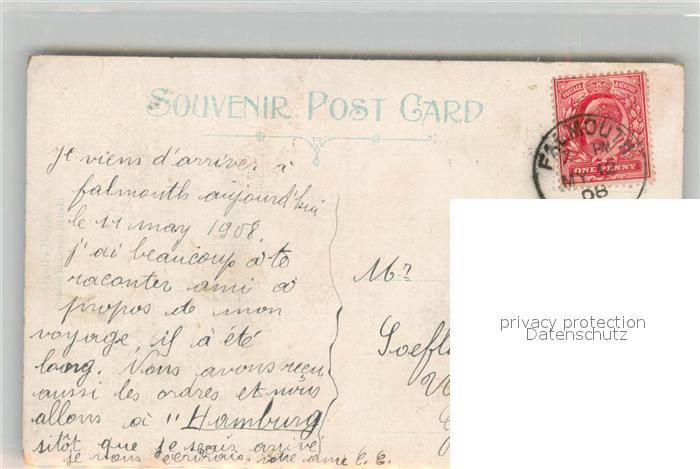 SOUVENIR POST CARD
POSTAGE & REVENUE
ONE PENNY
FALMOUTH
PM
MY
08
Je viens d'arriver à
falmouth aujourd'hui
le 11 may 1908.
j'ai beaucoup à te
raconter ami à
propos de mon
voyage, il à été
long. Nous avons reçu
aussi les ordres et nous
allons à "Hamburg
sitôt que je serais arrivé
je vous écrirais. votre ami C. E.
Mr
Soefl
privacy protection
Datenschutz